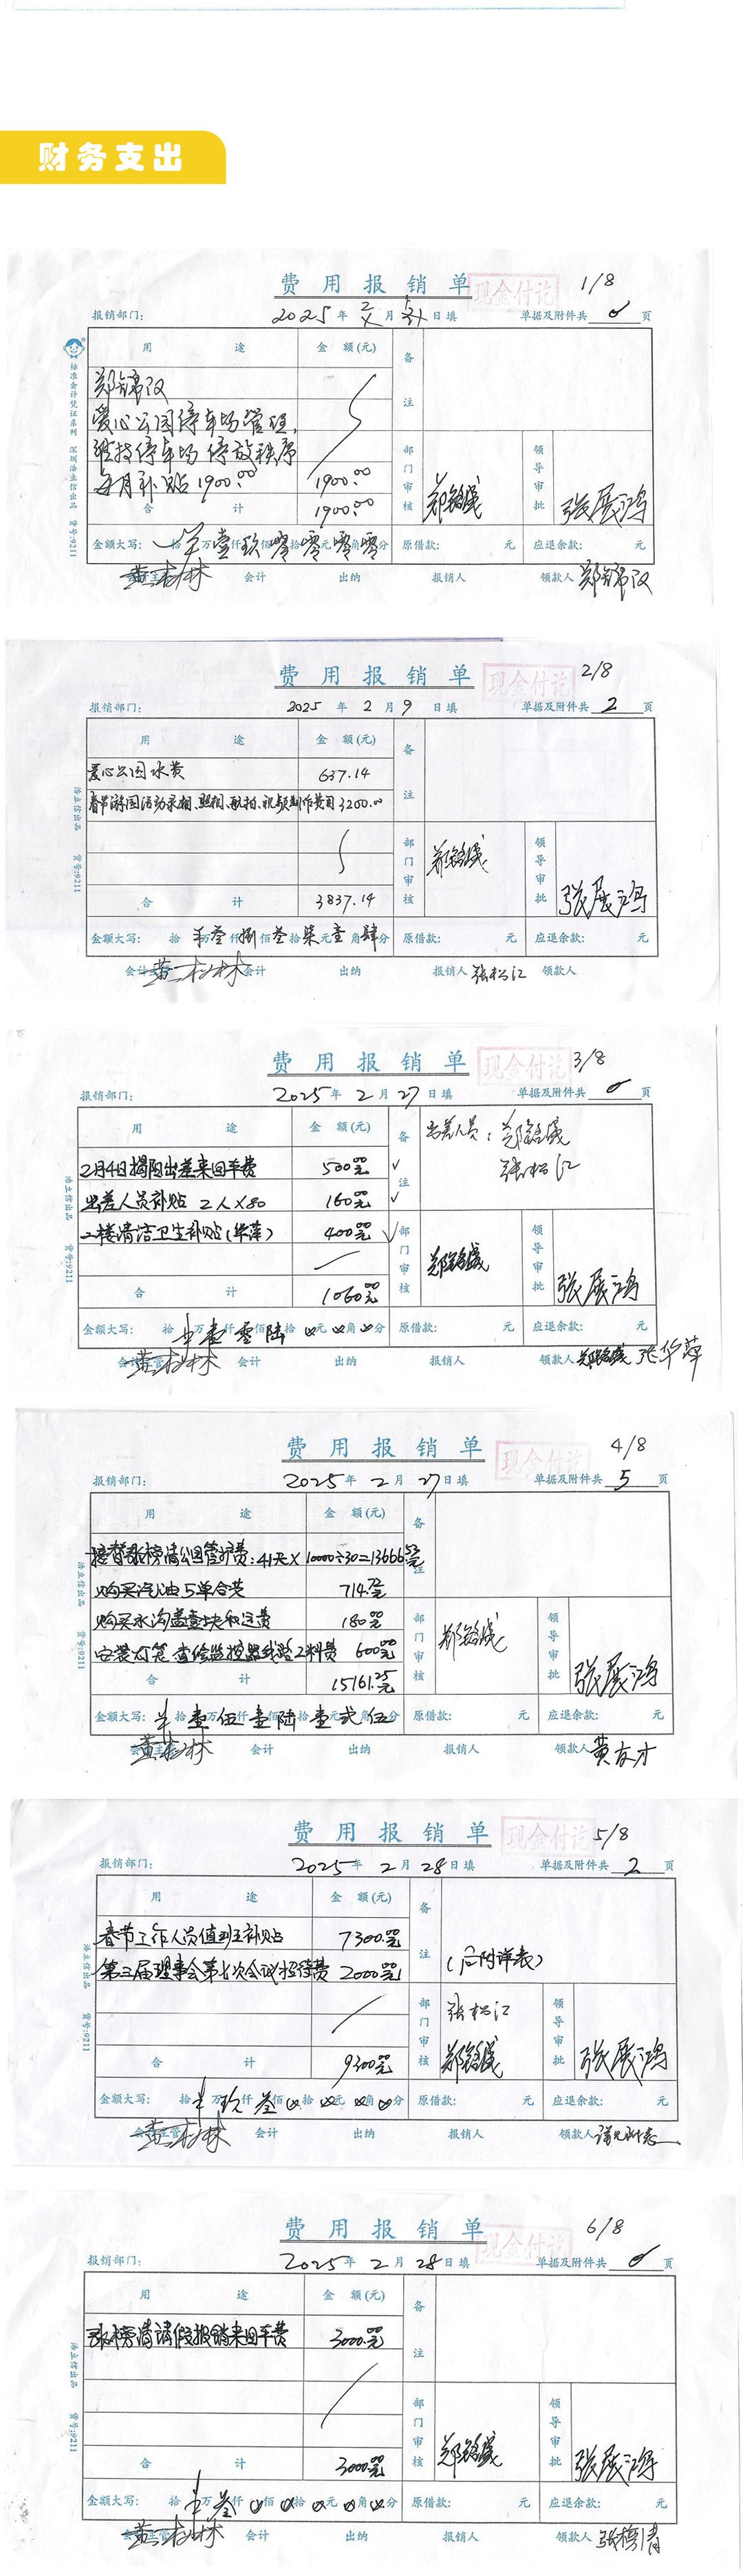 财务支出
费用报销单
现金付讫
1/8
报销部门:
2025年2月 日填
单据及附件共 0 页
用途
金额(元)
备注
郑锦汉
爱心公园停车场管理,
维持停车场停放秩序
每月补贴1900.00
1900.00
合计
1900.00
部门审核
领导审批
张展鸿
金额大写: 拾万壹仟玖佰零拾零元零角零分
原借款: 元
应退余款: 元
会计主管
黄松林
会计
出纳
报销人
领款人 郑锦汉
标准会计凭证系列
货号:9211
费用报销单
现金付讫
2/8
报销部门:
2025年2月9日填
单据及附件共 2 页
用途
金额(元)
备注
爱心公园水费
637.14
春节游园活动录相、照相、航拍、视频制作费用3200.00
合计
3837.14
部门审核
领导审批
张展鸿
金额大写: 拾万叁仟捌佰叁拾柒元壹角肆分
原借款: 元
应退余款: 元
会计主管
黄松林
会计
出纳
报销人 张松江
领款人
浩立信出品
货号:9211
费用报销单
现金付讫
3/8
报销部门:
2025年2月27日填
单据及附件共 0 页
用途
金额(元)
备注
出差人员:
张松江
2月4日揭阳出差来回车费
500.00元
出差人员补贴 2人×80
160.00元
二楼清洁卫生补贴(华萍)
400.00元
合计
1060.00元
部门审核
领导审批
张展鸿
金额大写: 拾万壹仟零佰陆拾元角分
原借款: 元
应退余款: 元
会计主管
黄松林
会计
出纳
报销人
领款人
张华萍
浩立信出品
货号:9211
费用报销单
现金付讫
4/8
报销部门:
2025年2月27日填
单据及附件共 5 页
用途
金额(元)
备注
接替张榜清公园管护费:41天×10000÷30=13666.53元
购买汽油5单合共
714.72元
购买水沟盖壹块和运费
180.00元
安装灯笼查修监控器线路工料费
600.00元
合计
15161.25元
部门审核
领导审批
张展鸿
金额大写: 拾壹万伍仟壹佰陆拾壹元贰角伍分
原借款: 元
应退余款: 元
会计主管
黄松林
会计
出纳
报销人
领款人 黄友才
浩立信出品
货号:9211
费用报销单
现金付讫
5/8
报销部门:
2025年2月28日填
单据及附件共 2 页
用途
金额(元)
备注
春节工作人员值班补贴
7300.00元
第三届理事会第七次会议招待费
2000.00元
(后附详表)
合计
9300.00元
部门审核
张松江
领导审批
张展鸿
金额大写: 拾万玖仟叁佰拾元角分
原借款: 元
应退余款: 元
会计主管
黄松林
会计
出纳
报销人
领款人 详见附表
浩立信出品
货号:9211
费用报销单
现金付讫
6/8
报销部门:
2025年2月28日填
单据及附件共 0 页
用途
金额(元)
备注
张榜清请假报销来回车费
3000.00元
合计
3000.00元
部门审核
领导审批
张展鸿
金额大写: 拾万叁仟佰拾元角分
原借款: 元
应退余款: 元
会计主管
黄松林
会计
出纳
报销人
领款人 张榜清
浩立信出品
货号:9211